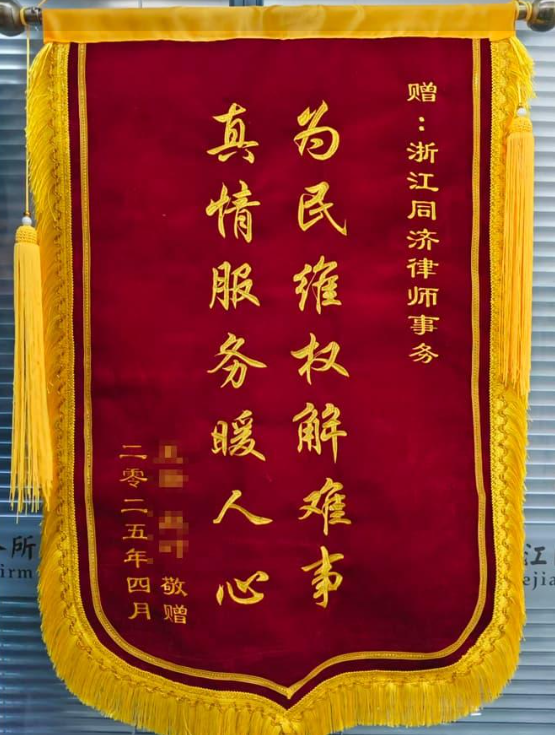 赠：浙江同济律师事务
为民维权解难事
真情服务暖人心
敬赠
二零二五年四月
所
irm
江
ejia